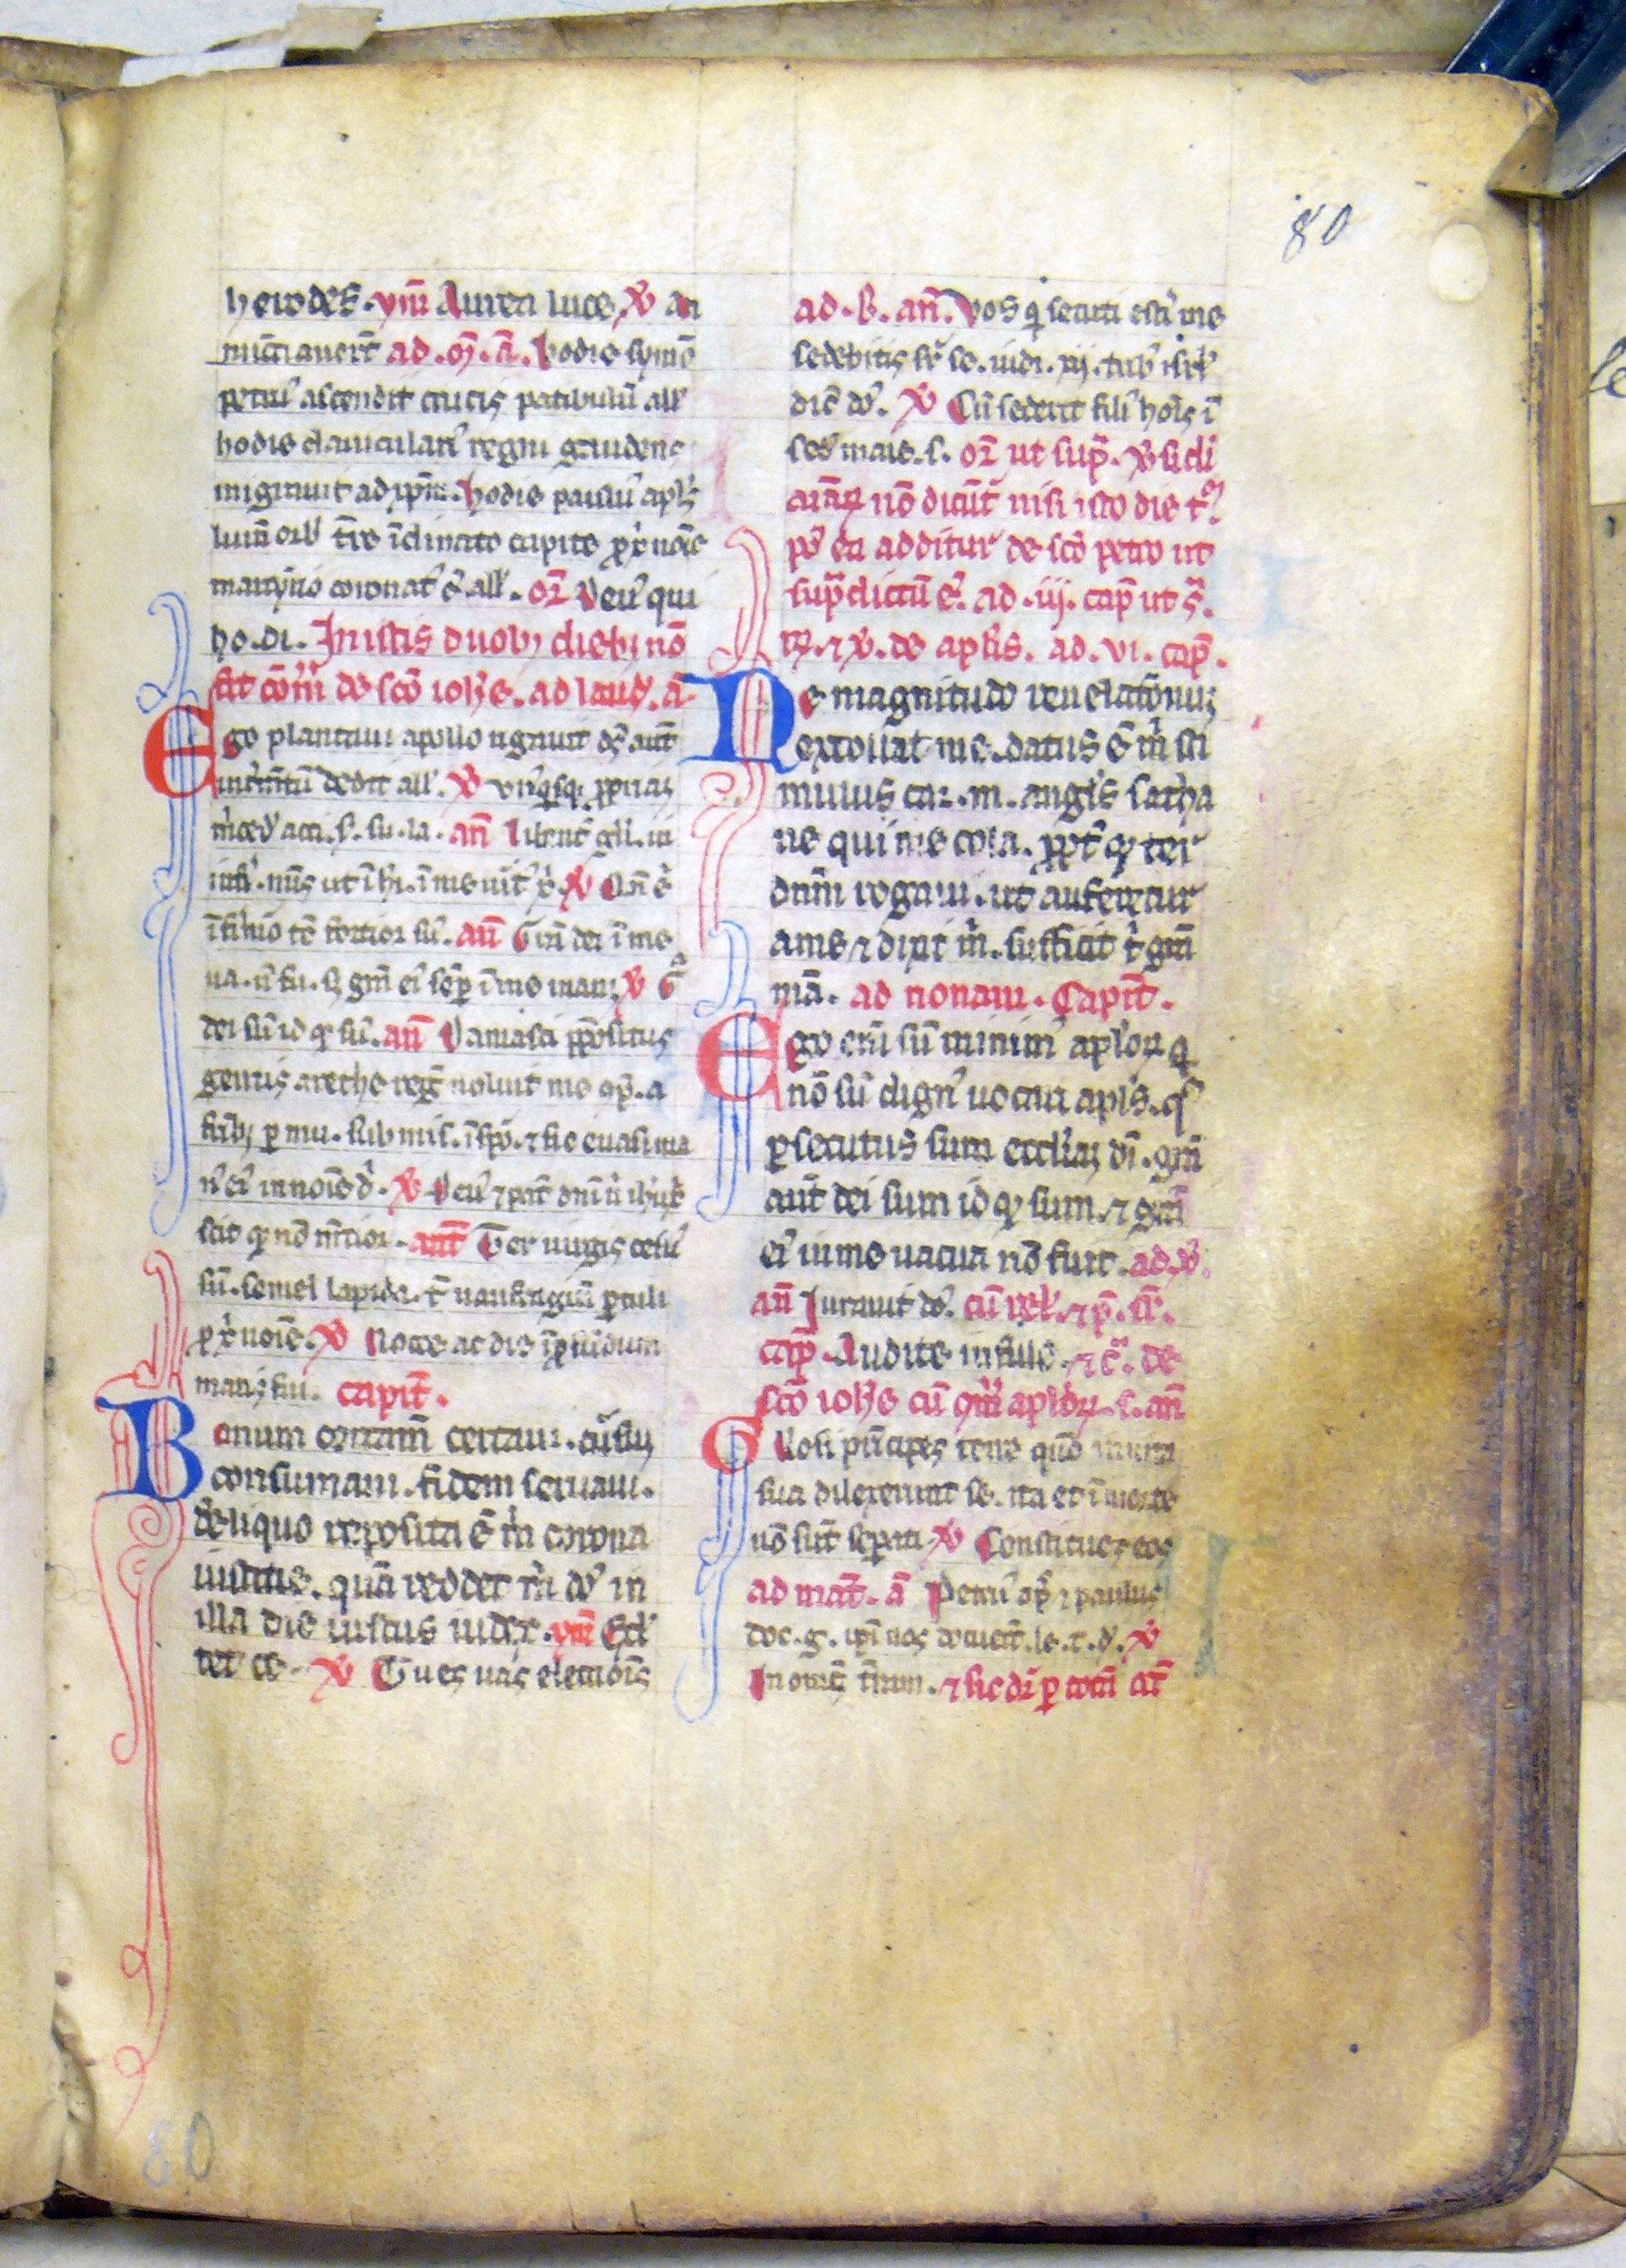 80
herodes. ym̄ Aurea luce. ℣ an
nūciauerūt ad. m̄. ā. hodie symō
petrus ascendit crucis patibulū all'
hodie clauicularius regni gaudens
migrauit ad xp̄m. hodie paulus apl's
lumē orbis t̄re īclinato capite p xp̄i noīe
martyrio coronatus ē all'. or̄ Deus qui
ho. di. In istis duobꝫ diebꝫ nō
fit cōm̄ de sc̄o ioh̄e. ad laud'. ā
Ego plantaui apollo rigauit ds̄ aut̄
incrementū dedit all'. ℣ vnusqisqꝫ ppriaꝫ
m̄ced' acci. s. su. la. an̄ Libent̄ gl'i. in
infir. meis ut īhi. ī me uirt̄ x. ℣ Cū ē
īfirmor tc̄ fortior sū. an̄ Gr̄a dei ī me
ua. n̄ fu. s; gr̄a eius sēp ī me maneꝫ ℣ Gr̄a
dei sū id qd sū. an̄ Damasci ppositus
gentis arethe regis uoluit me cōp. a
fr̄ibꝫ p mu. sub mis. ī spor. ⁊ sic euasi ma
n' ei' in noīe d'. ℣ Deus ⁊ pat̄ dn̄i n̄ ih'u x
scit qd nō m̄tior. ant̄ Ter uirgis cesus
sū. semel lapida. t̄ naufragiū ptuli
p xp̄i noīe. ℣ Nocte ac die ī pfūdum
maris fui. capit̄.
Bonum certam̄ certaui. cursuꝫ
consumaui. fidem seruaui.
de liquo reposita ē m̄ corona
iustitie. quā reddet m̄ dn̄s in
illa die iustus iudex. ym̄ Exul
tet ce. ℣ Tu es uas electiōis
ad. b. an̄. Vos q̄ secuti estis me
sedebitis sup̄ se. iudi. xij. trib' isrl'
dic̄ dn̄s. ℣ Cū sederit filius hoīs ī
sede maie. s. or̄ ut sup̄. ℣siculi
ariāꝝ nō dicūt̄ nisi isto die t̄.
p' ea additur de sc̄o petro ut
sup̄dictū ē. ad. iij. cap̄ ut s̄.
℟. ⁊ ℣. de apl'is. ad. vi. cap̄.
Ne magnitudo reuelationuꝫ
extollat me. datus ē m̄ sti
mulus car. m. angl's satha
ne qui me cola. ppt̄ qd ter
dn̄m rogaui. ut auferretur
a me ⁊ dixit m̄. sufficit t̄ gr̄a
mā. ad nonam. Capit̄.
Ego eni sū minim' apl'oꝝ q
nō sū dign' uocari apl's. q'
psecutus sum eccl'iaꝫ dī. gr̄a
aut̄ dei sum id qd sum. ⁊ gr̄a
ei' in me uacua nō fuit. ad. ℣.
an̄ Iurauit dn̄s. cū rel'. ⁊ p̄. s̄.
cap̄. Audite insule. ⁊ ē. de
sc̄o ioh̄e cū cōm̄ apl'oꝝ. s. an̄
Gloriosi pn̄cipes terre quō in uita
sua dilexerunt se. ita et ī morte
nō sūt sepati ℣ Constitues eos
ad mat̄. ā Petrus ap̄ ⁊ paulus
doc. g. ipī nos docuerūt. le. t. d. ℣
In omnē t̄ram. ⁊ sic dī p totū oct̄
80